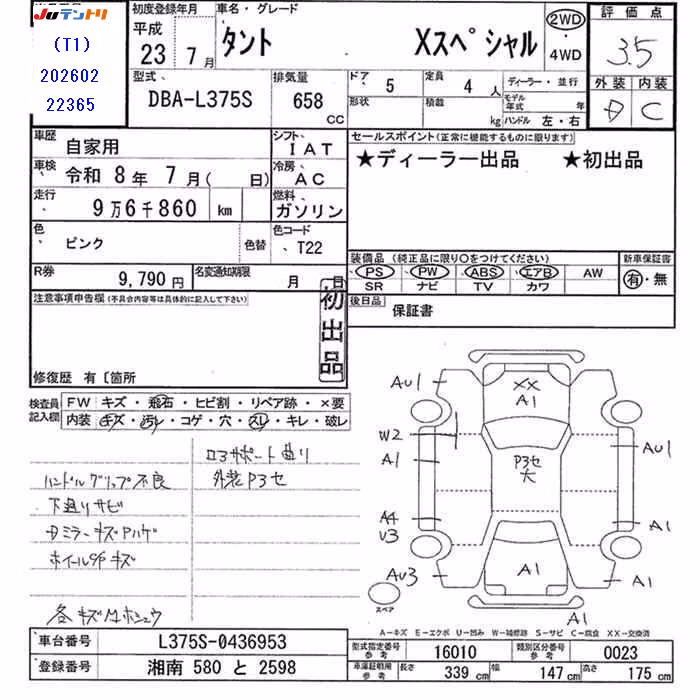 Juテントリ
(T1)
202602
22365
初度登録年月
平成
23年
7月
車名・グレード
タント Xスペシャル
2WD
・
4WD
評価点
3.5
外装 内装
D C
型式、
DBA-L375S
排気量
658
CC
ドア、
5
定員
4人
形状
積載
kg
ディーラー・並行
モデル年式 年
ハンドル 左・右
車歴
自家用
シフト、
IAT
車検、
令和 8年 7月( 日)
冷房、
AC
走行、
9万6千860 km
燃料、
ガソリン
色、
ピンク
色替
色コード、
T22
R券
9,790円
名変通知期限
月 日
セールスポイント(正常に機能するものに限ります)
★ディーラー出品 ★初出品
装備品(純正品に限り○をつけてください)
PS PW ABS エアB AW
SR ナビ TV カワ
新車保証書
有・無
後日品
保証書
注意事項申告欄(不具合内容等は具体的に記入して下さい)
初出品
修復歴 有〔箇所
検査員記入欄
FW キズ・飛石・ヒビ割・リペア跡・×要
内装 キズ・汚レ・コゲ・穴・スレ・キレ・破レ
ロアサポート曲り
ハンドルグリップ不良
外装P3セ
下廻りサビ
Dミラーキズハゲ
ホイールCapキズ
各キズ凹ホシュウ
AU1
XX
A1
W2
A1
P3セ
大
AU1
A4
U3
A1
AU3
A1
A1
A1
スペア
A-キズ E-エクボ U-凹み W-補修跡 S-サビ C-腐食 XX-交換済
車台番号
L375S-0436953
登録番号
湘南 580 と 2598
型式指定番号
参考
16010
類別区分番号
参考
0023
車庫証明用
参考
長さ
339cm
幅
147cm
高さ
175cm